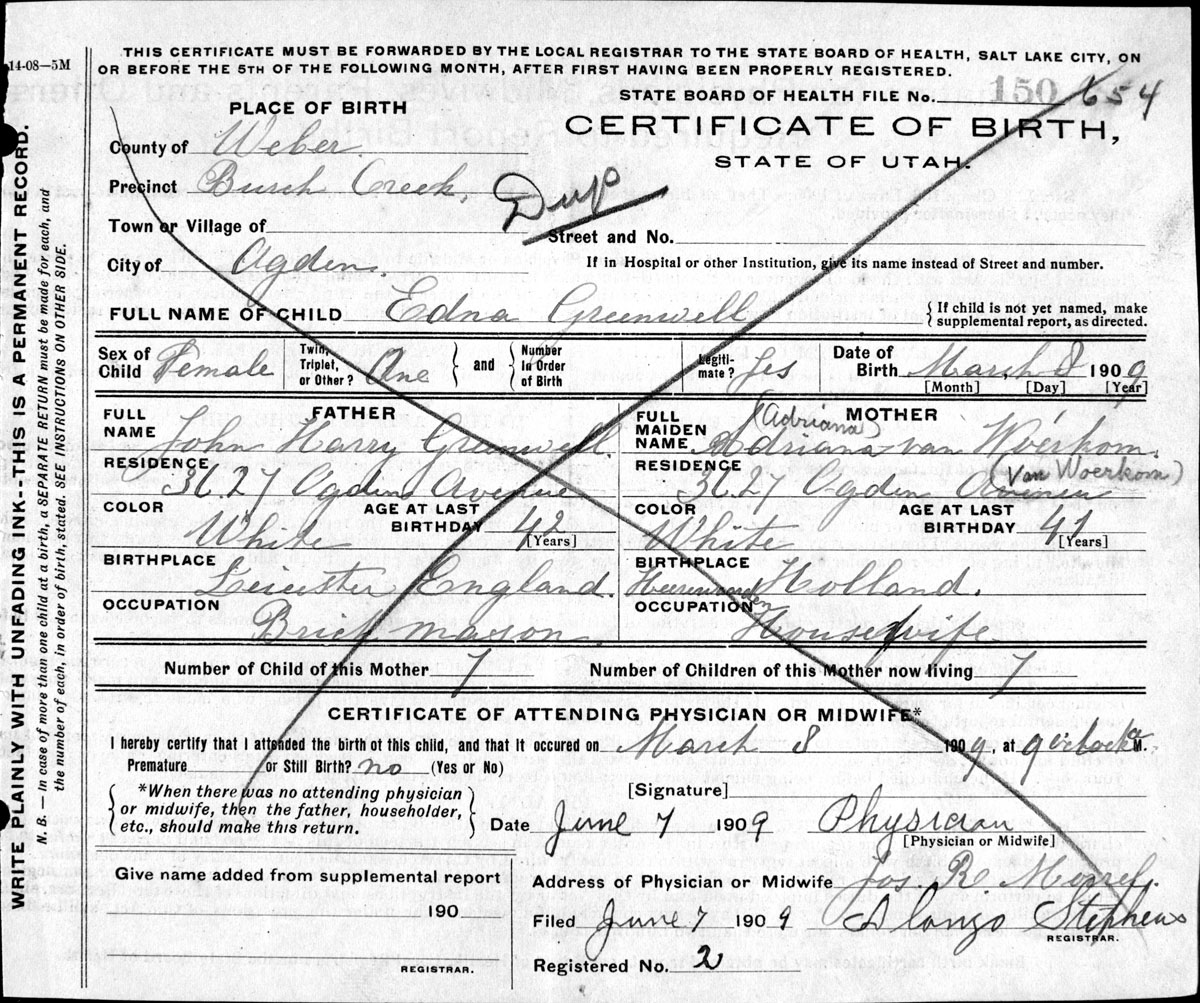 14-08—5M
THIS CERTIFICATE MUST BE FORWARDED BY THE LOCAL REGISTRAR TO THE STATE BOARD OF HEALTH, SALT LAKE CITY, ON
OR BEFORE THE 5TH OF THE FOLLOWING MONTH, AFTER FIRST HAVING BEEN PROPERLY REGISTERED.
WRITE PLAINLY WITH UNFADING INK--THIS IS A PERMANENT RECORD.
N. B. — In case of more than one child at a birth, a SEPARATE RETURN must be made for each, and
the number of each, in order of birth, stated. SEE INSTRUCTIONS ON OTHER SIDE.
PLACE OF BIRTH
STATE BOARD OF HEALTH FILE No. 150 654
CERTIFICATE OF BIRTH,
STATE OF UTAH.
County of Weber.
Precinct Burch Creek.
Dup
Town or Village of
Street and No.
City of Ogden.
If in Hospital or other Institution, give its name instead of Street and number.
FULL NAME OF CHILD Edna Greenwell
{If child is not yet named, make
supplemental report, as directed.
Sex of Child Female
Twin, Triplet, or Other? One } and { Number in Order of Birth
Legiti-mate? Yes
Date of Birth March 8 1909
[Month] [Day] [Year]
FATHER
FULL NAME John Harry Greenwell.
RESIDENCE 3627 Ogden Avenue
COLOR White
AGE AT LAST BIRTHDAY 42 [Years]
BIRTHPLACE Leicester England.
OCCUPATION Brick mason
MOTHER
FULL MAIDEN NAME (Adriana) Adriana van Woerkom.
(Van Woerkom)
RESIDENCE 3627 Ogden Avenue
COLOR White
AGE AT LAST BIRTHDAY 41 [Years]
BIRTHPLACE Heerewaarden Holland.
OCCUPATION Housewife
Number of Child of this Mother 7
Number of Children of this Mother now living 7
CERTIFICATE OF ATTENDING PHYSICIAN OR MIDWIFE*
I hereby certify that I attended the birth of this child, and that it occured on March 8 1909, at 9 o'clock a M.
Premature or Still Birth? no (Yes or No)
{ *When there was no attending physician
or midwife, then the father, householder,
etc., should make this return. }
[Signature]
Date June 7 1909 Physician
[Physician or Midwife]
Give name added from supplemental report
190
REGISTRAR.
Address of Physician or Midwife Jos. R. Morrel.
Filed June 7 1909 Alonzo Stephens
REGISTRAR.
Registered No. 2